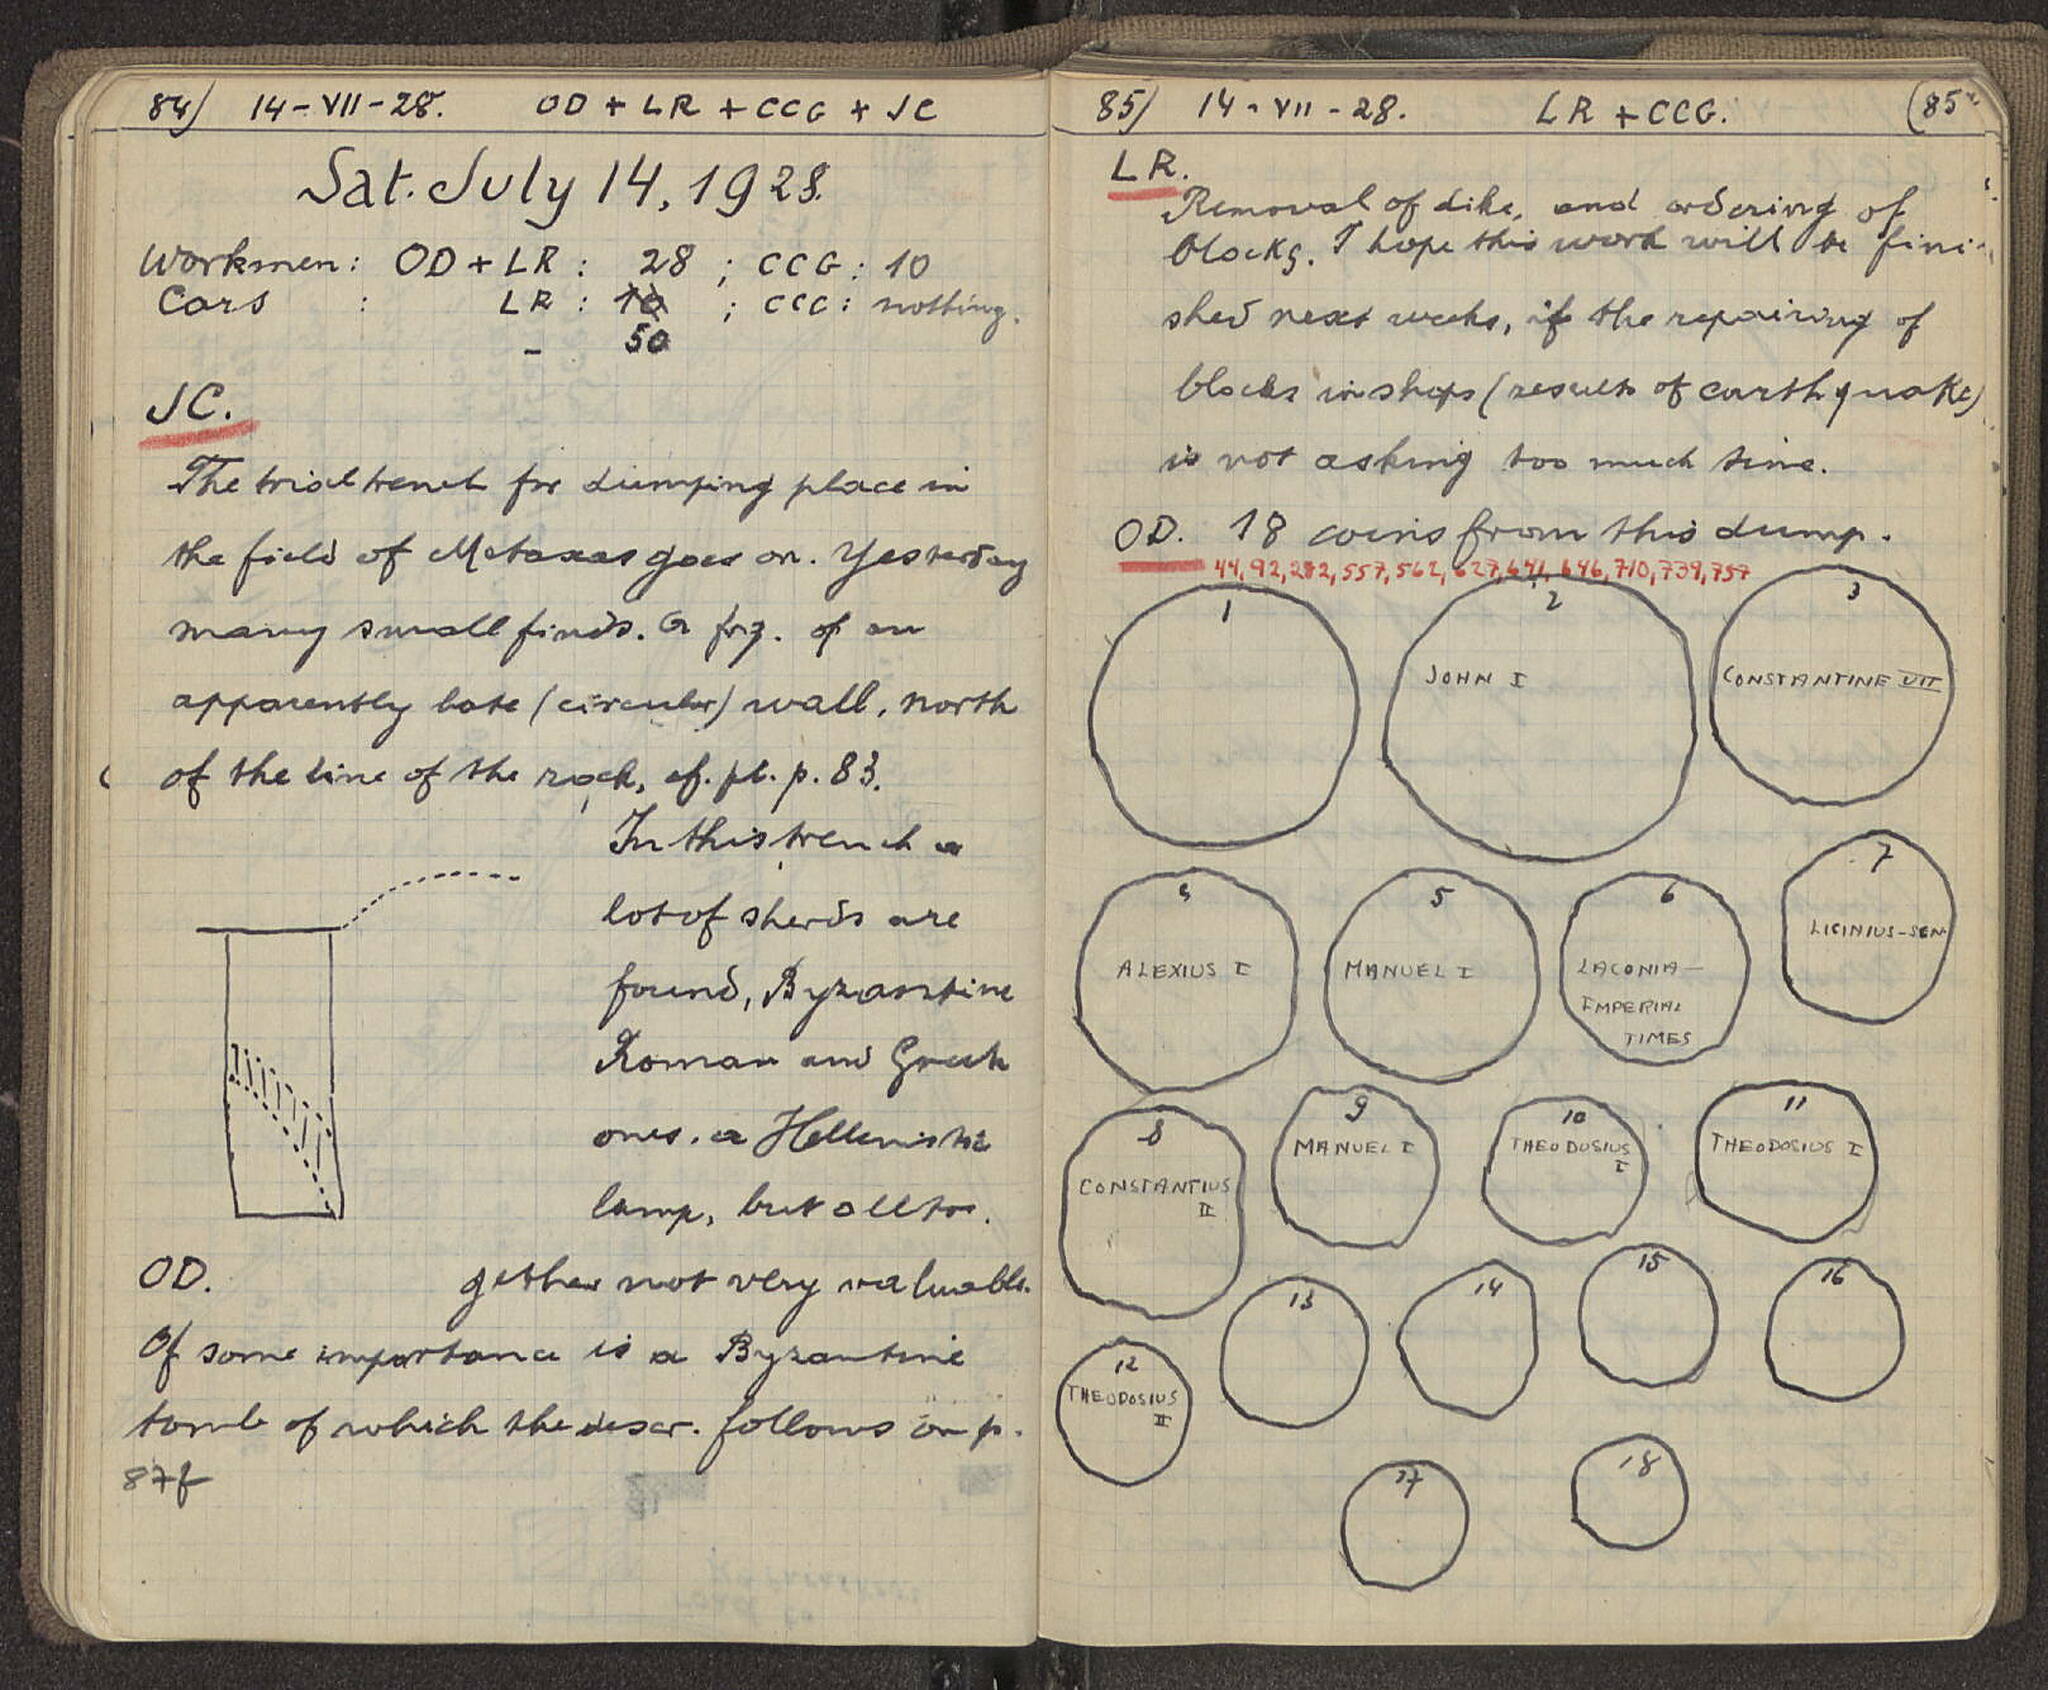 84) 14-VII-28. OD + LR + CCG + JC
Sat. July 14, 1928.
Workmen: OD + LR : 28 ; CCG : 10
Cars : LR : 10 ; CCC : nothing.
- 50
JC.
The trial trench for dumping place in
the field of Metaxas goes on. Yesterday
many small finds. A frg. of an
apparently late (circular) wall, north
of the line of the rock, cf. pl. p. 83.
In this trench a
lot of sherds are
found, Byzantine
Roman and Greek
ones. a Hellenistic
lamp, but all to-
OD. gether not very valuable.
Of some importance is a Byzantine
tomb of which the descr. follows on p.
87f
85) 14-VII-28. LR + CCG. (85
LR.
Removal of dike, and ordering of
blocks. I hope this work will be fini-
shed next weeks, if the repairing of
blocks in shops (results of earthquake)
is not asking too much time.
OD. 18 coins from this dump.
44, 92, 282, 557, 562, 627, 641, 646, 710, 739, 757
1
2
JOHN I
3
CONSTANTINE VII
4
ALEXIUS I
5
MANUEL I
6
LACONIA-
IMPERIAL
TIMES
7
LICINIUS-SEN.
8
CONSTANTIUS
II
9
MANUEL I
10
THEODOSIUS
I
11
THEODOSIUS I
12
THEODOSIUS
II
13
14
15
16
17
18